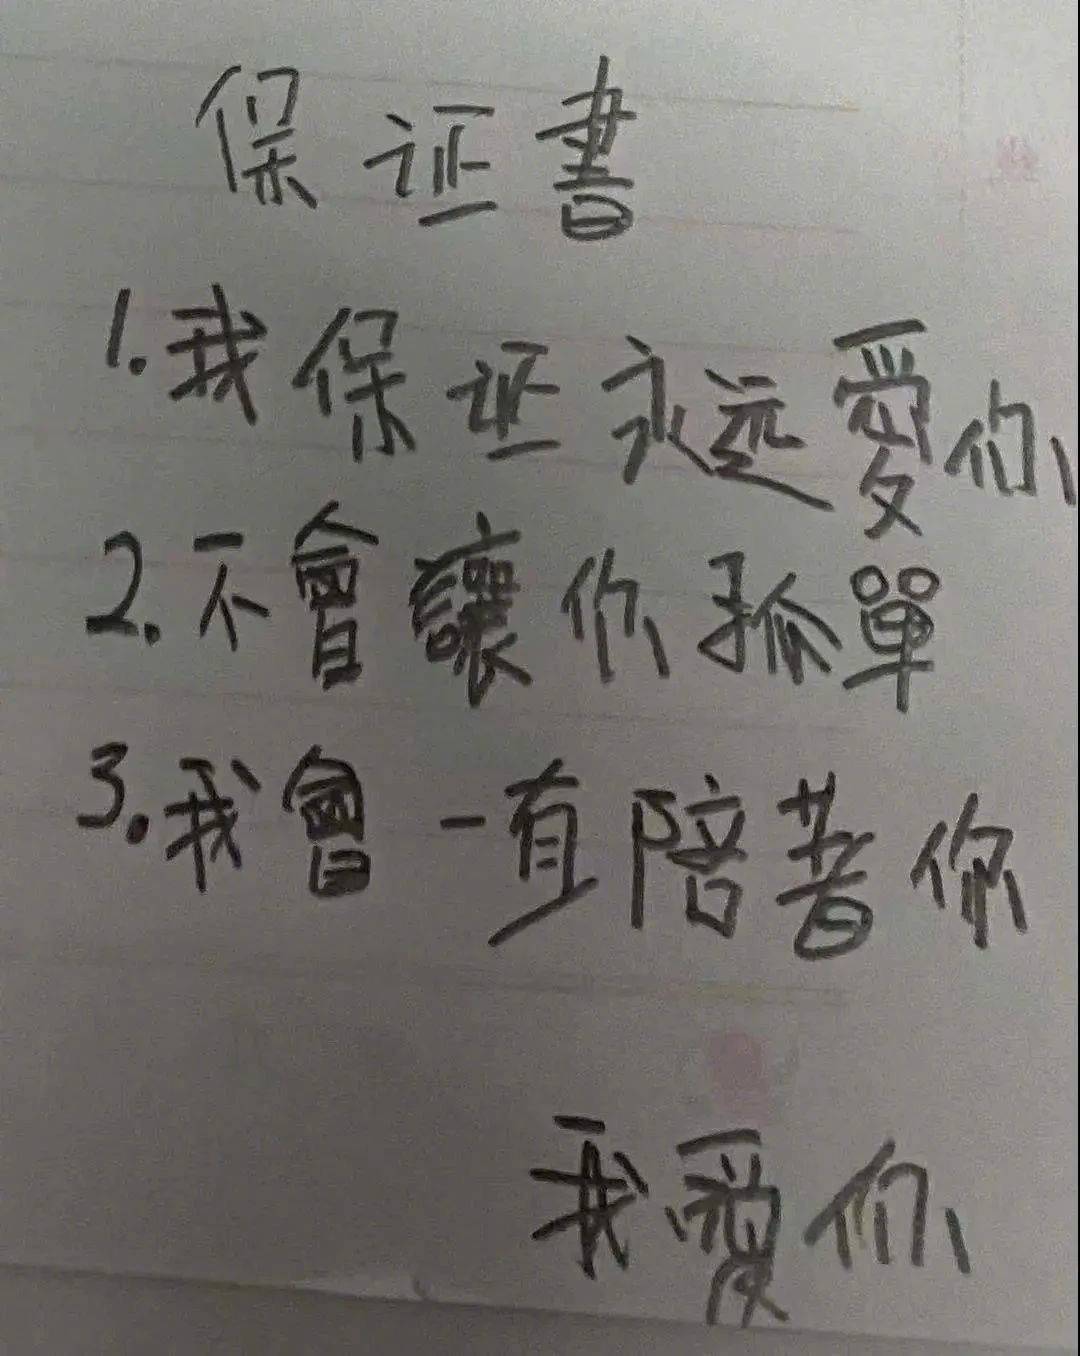 保证書
1.我保证永远愛你
2.不會讓你孤單
3.我會一直陪著你
我愛你